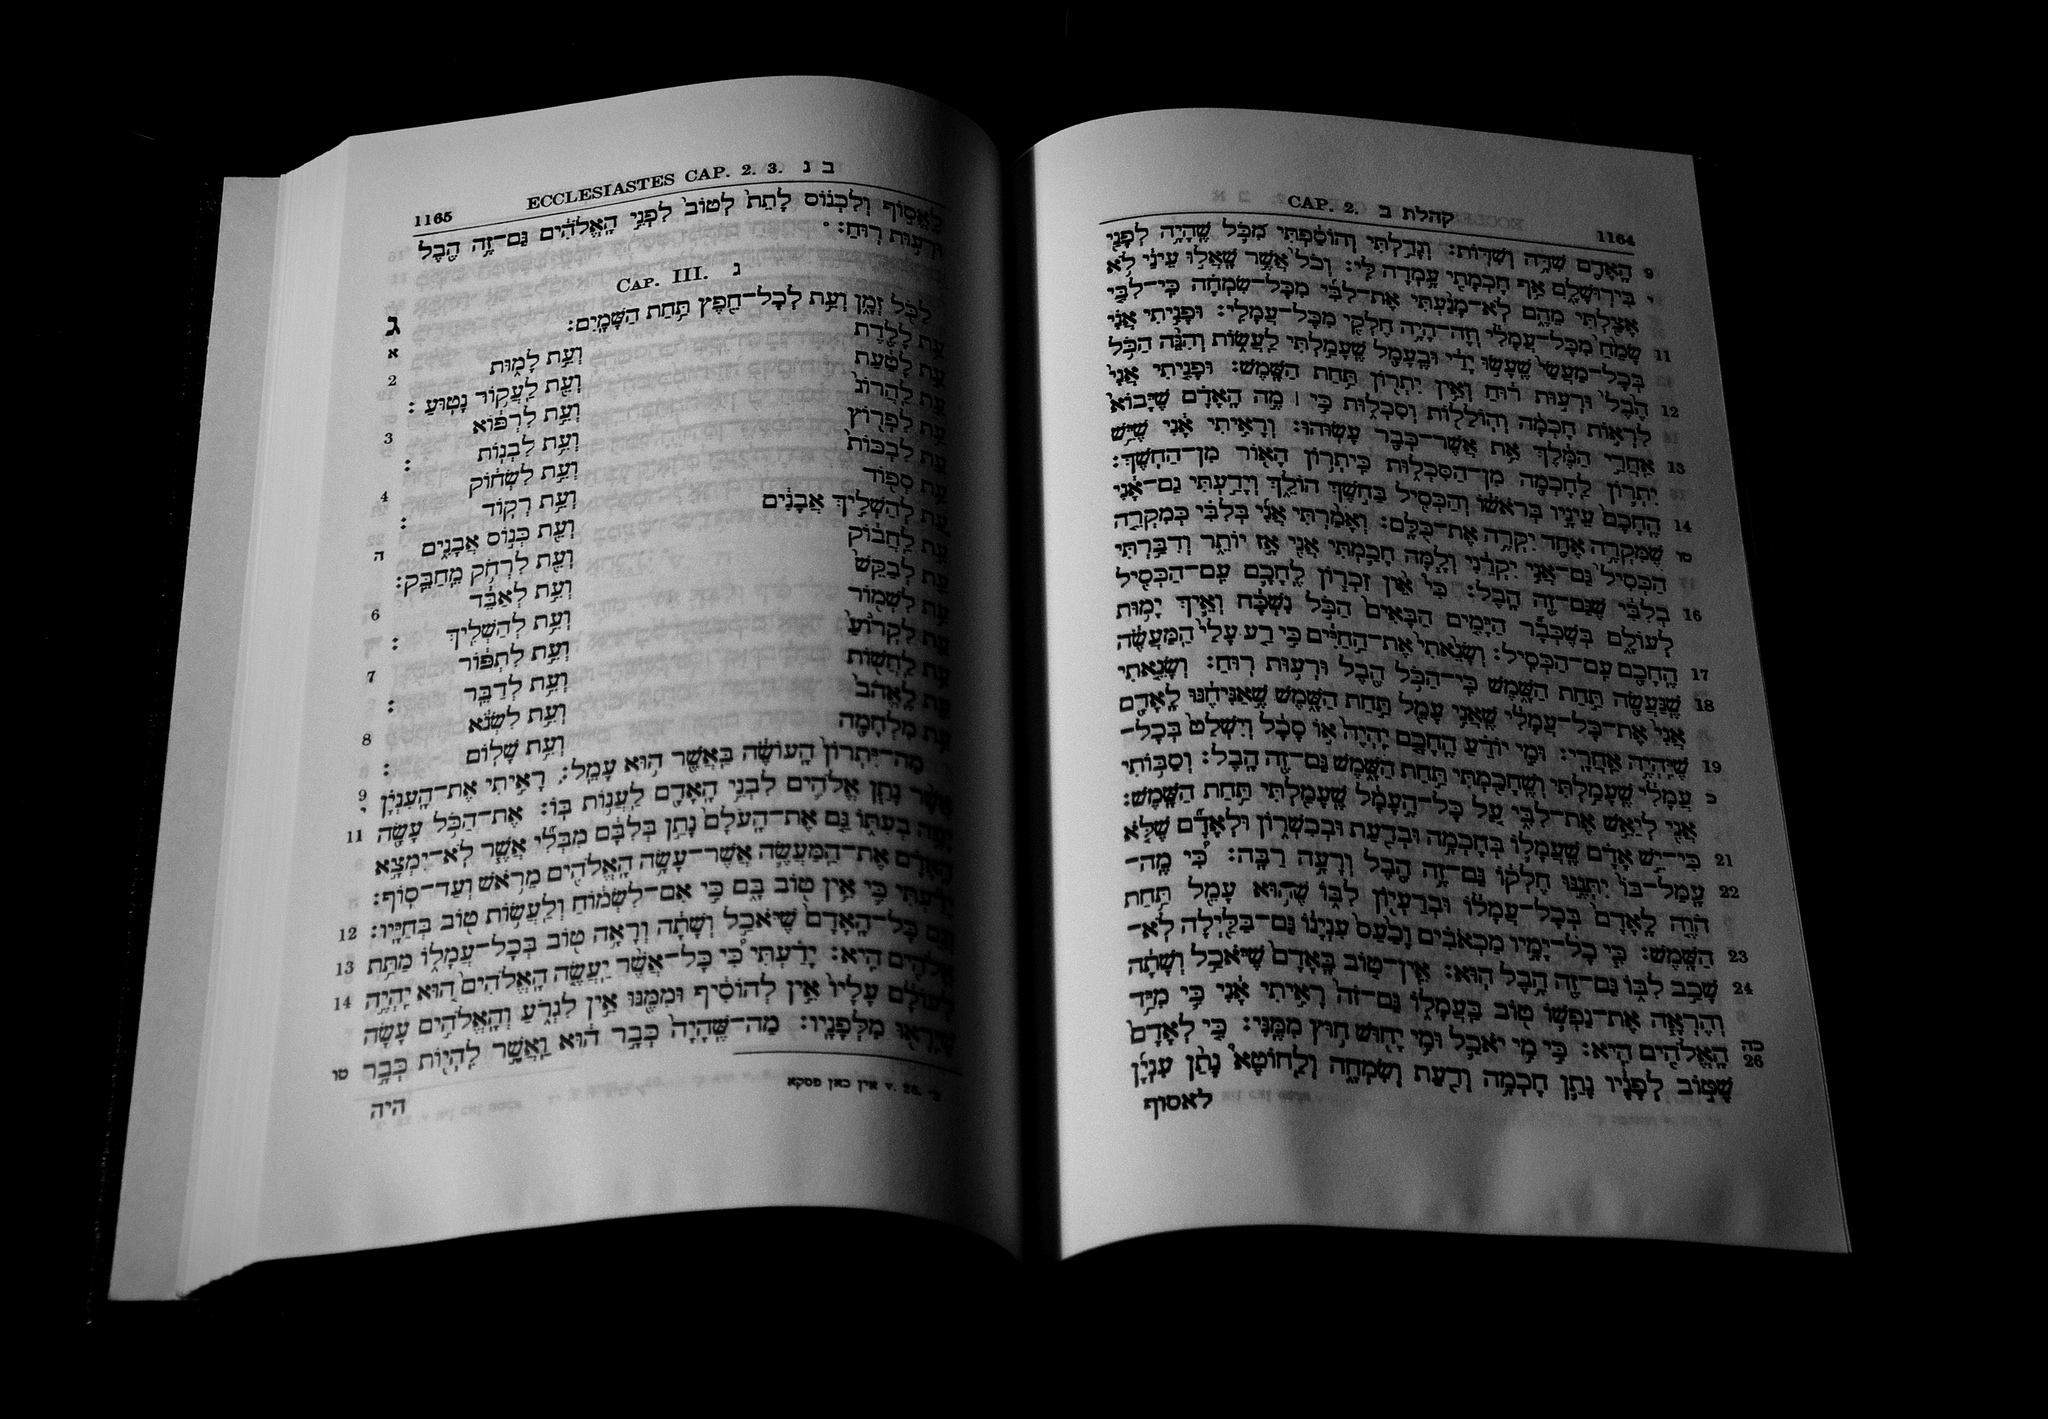 קהלת ב CAP. 2. 1164
הָאָדָם שִׁדָּה וְשִׁדּוֹת: וְגָדַלְתִּי וְהוֹסַפְתִּי מִכֹּל שֶׁהָיָה לְפָנַי 9
בִּירוּשָׁלִָם אַף חָכְמָתִי עָמְדָה לִּי: וְכֹל אֲשֶׁר שָׁאֲלוּ עֵינַי לֹא י
אָצַלְתִּי מֵהֶם לֹא־מָנַעְתִּי אֶת־לִבִּי מִכָּל־שִׂמְחָה כִּי־לִבִּי
שָׂמֵחַ מִכָּל־עֲמָלִי וְזֶה־הָיָה חֶלְקִי מִכָּל־עֲמָלִי: וּפָנִיתִי אֲנִי 11
בְּכָל־מַעֲשַׂי שֶׁעָשׂוּ יָדַי וּבֶעָמָל שֶׁעָמַלְתִּי לַעֲשׂוֹת וְהִנֵּה הַכֹּל
הֶבֶל וּרְעוּת רוּחַ וְאֵין יִתְרוֹן תַּחַת הַשָּׁמֶשׁ: וּפָנִיתִי אֲנִי 12
לִרְאוֹת חָכְמָה וְהוֹלֵלוֹת וְסִכְלוּת כִּי ׀ מֶה הָאָדָם שֶׁיָּבוֹא
אַחֲרֵי הַמֶּלֶךְ אֵת אֲשֶׁר־כְּבָר עָשׂוּהוּ: וְרָאִיתִי אָנִי שֶׁיֵּשׁ 13
יִתְרוֹן לַחָכְמָה מִן־הַסִּכְלוּת כִּיתְרוֹן הָאוֹר מִן־הַחֹשֶׁךְ:
הֶחָכָם עֵינָיו בְּרֹאשׁוֹ וְהַכְּסִיל בַּחֹשֶׁךְ הוֹלֵךְ וְיָדַעְתִּי גַם־אָנִי 14
שֶׁמִּקְרֶה אֶחָד יִקְרֶה אֶת־כֻּלָּם: וְאָמַרְתִּי אֲנִי בְּלִבִּי כְּמִקְרֵה טו
הַכְּסִיל גַּם־אֲנִי יִקְרֵנִי וְלָמָּה חָכַמְתִּי אֲנִי אָז יוֹתֵר וְדִבַּרְתִּי
בְלִבִּי שֶׁגַּם־זֶה הָבֶל: כִּי אֵין זִכְרוֹן לֶחָכָם עִם־הַכְּסִיל 16
לְעוֹלָם בְּשֶׁכְּבָר הַיָּמִים הַבָּאִים הַכֹּל נִשְׁכָּח וְאֵיךְ יָמוּת
הֶחָכָם עִם־הַכְּסִיל: וְשָׂנֵאתִי אֶת־הַחַיִּים כִּי רַע עָלַי הַמַּעֲשֶׂה 17
שֶׁנַּעֲשָׂה תַּחַת הַשָּׁמֶשׁ כִּי־הַכֹּל הֶבֶל וּרְעוּת רוּחַ: וְשָׂנֵאתִי 18
אֲנִי אֶת־כָּל־עֲמָלִי שֶׁאֲנִי עָמֵל תַּחַת הַשָּׁמֶשׁ שֶׁאַנִּיחֶנּוּ לָאָדָם
שֶׁיִּהְיֶה אַחֲרָי: וּמִי יוֹדֵעַ הֶחָכָם יִהְיֶה אוֹ סָכָל וְיִשְׁלַט בְּכָל־ 19
עֲמָלִי שֶׁעָמַלְתִּי וְשֶׁחָכַמְתִּי תַּחַת הַשָּׁמֶשׁ גַּם־זֶה הָבֶל: וְסַבּוֹתִי כ
אֲנִי לְיַאֵשׁ אֶת־לִבִּי עַל כָּל־הֶעָמָל שֶׁעָמַלְתִּי תַּחַת הַשָּׁמֶשׁ:
כִּי־יֵשׁ אָדָם שֶׁעֲמָלוֹ בְּחָכְמָה וּבְדַעַת וּבְכִשְׁרוֹן וּלְאָדָם שֶׁלֹּא 21
עָמַל־בּוֹ יִתְּנֶנּוּ חֶלְקוֹ גַּם־זֶה הֶבֶל וְרָעָה רַבָּה: כִּי מֶה־ 22
הֹוֶה לָאָדָם בְּכָל־עֲמָלוֹ וּבְרַעְיוֹן לִבּוֹ שֶׁהוּא עָמֵל תַּחַת
הַשָּׁמֶשׁ: כִּי כָל־יָמָיו מַכְאֹבִים וָכַעַס עִנְיָנוֹ גַּם־בַּלַּיְלָה לֹא־ 23
שָׁכַב לִבּוֹ גַּם־זֶה הֶבֶל הוּא: אֵין־טוֹב בָּאָדָם שֶׁיֹּאכַל וְשָׁתָה 24
וְהֶרְאָה אֶת־נַפְשׁוֹ טוֹב בַּעֲמָלוֹ גַּם־זֹה רָאִיתִי אָנִי כִּי מִיַּד
הָאֱלֹהִים הִיא: כִּי מִי יֹאכַל וּמִי יָחוּשׁ חוּץ מִמֶּנִּי: כִּי לְאָדָם כה 26
שֶׁטּוֹב לְפָנָיו נָתַן חָכְמָה וְדַעַת וְשִׂמְחָה וְלַחוֹטֶא נָתַן עִנְיָן
לאסוף
1165 ECCLESIASTES CAP. 2. 3. ב ג
לֶאֱסוֹף וְלִכְנוֹס לָתֵת לְטוֹב לִפְנֵי הָאֱלֹהִים גַּם־זֶה הֶבֶל
וּרְעוּת רוּחַ: °
CAP. III. ג
לַכֹּל זְמָן וְעֵת לְכָל־חֵפֶץ תַּחַת הַשָּׁמָיִם: ג א
עֵת לָלֶדֶת וְעֵת לָמוּת 2
עֵת לָטַעַת וְעֵת לַעֲקוֹר נָטוּעַ:
עֵת לַהֲרוֹג וְעֵת לִרְפּוֹא 3
עֵת לִפְרוֹץ וְעֵת לִבְנוֹת:
עֵת לִבְכּוֹת וְעֵת לִשְׂחוֹק 4
עֵת סְפוֹד וְעֵת רְקוֹד:
עֵת לְהַשְׁלִיךְ אֲבָנִים וְעֵת כְּנוֹס אֲבָנִים ה
עֵת לַחֲבוֹק וְעֵת לִרְחֹק מֵחַבֵּק:
עֵת לְבַקֵּשׁ וְעֵת לְאַבֵּד 6
עֵת לִשְׁמוֹר וְעֵת לְהַשְׁלִיךְ:
עֵת לִקְרוֹעַ וְעֵת לִתְפּוֹר 7
עֵת לַחֲשׁוֹת וְעֵת לְדַבֵּר:
עֵת לֶאֱהֹב וְעֵת לִשְׂנֹא 8
עֵת מִלְחָמָה וְעֵת שָׁלוֹם:
מַה־יִּתְרוֹן הָעוֹשֶׂה בַּאֲשֶׁר הוּא עָמֵל: רָאִיתִי אֶת־הָעִנְיָן 9 י
אֲשֶׁר נָתַן אֱלֹהִים לִבְנֵי הָאָדָם לַעֲנוֹת בּוֹ: אֶת־הַכֹּל עָשָׂה 11
יָפֶה בְעִתּוֹ גַּם אֶת־הָעֹלָם נָתַן בְּלִבָּם מִבְּלִי אֲשֶׁר לֹא־יִמְצָא
הָאָדָם אֶת־הַמַּעֲשֶׂה אֲשֶׁר־עָשָׂה הָאֱלֹהִים מֵרֹאשׁ וְעַד־סוֹף:
יָדַעְתִּי כִּי אֵין טוֹב בָּם כִּי אִם־לִשְׂמוֹחַ וְלַעֲשׂוֹת טוֹב בְּחַיָּיו: 12
וְגַם כָּל־הָאָדָם שֶׁיֹּאכַל וְשָׁתָה וְרָאָה טוֹב בְּכָל־עֲמָלוֹ מַתַּת 13
אֱלֹהִים הִיא: יָדַעְתִּי כִּי כָּל־אֲשֶׁר יַעֲשֶׂה הָאֱלֹהִים הוּא יִהְיֶה 14
לְעוֹלָם עָלָיו אֵין לְהוֹסִיף וּמִמֶּנּוּ אֵין לִגְרֹעַ וְהָאֱלֹהִים עָשָׂה
שֶׁיִּרְאוּ מִלְּפָנָיו: מַה־שֶּׁהָיָה כְּבָר הוּא וַאֲשֶׁר לִהְיוֹת כְּבָר טו
v. 26. אין כאן פסקא
היה